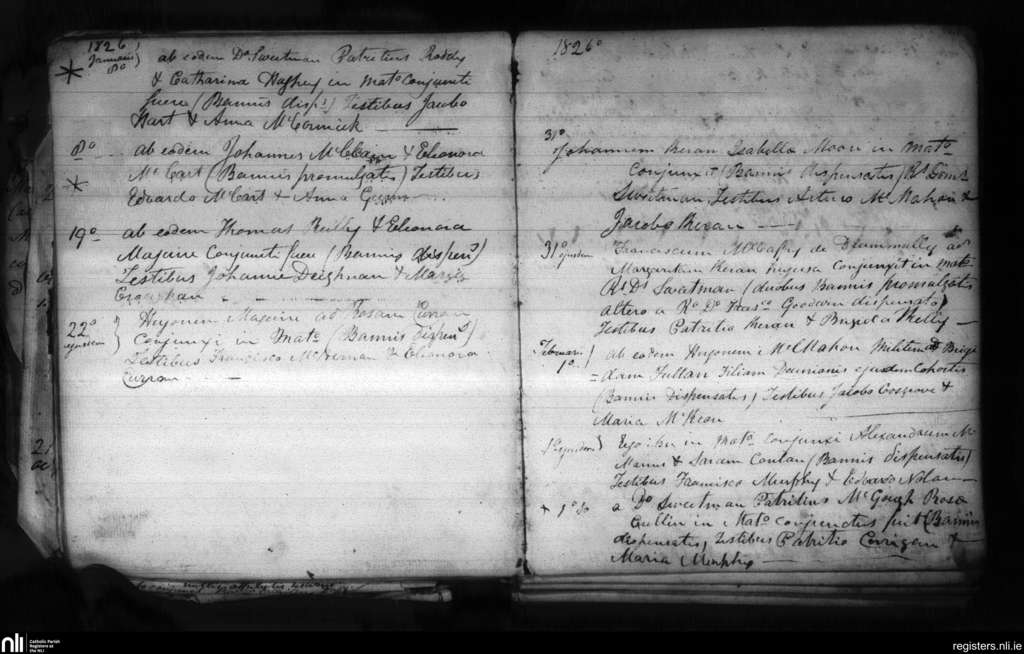 1826
Januarii 8º ab eodem Dº Sweetman Patritius Roddy
& Catharina Hughey in Matº Conjuncti
fuere (Bannis disp.) Testibus Jacobo
Hart & Anna McCormick
8º ab eodem Johannes & Eleonora
McCart (Bannis promulgatis) Testibus
Edwardo McCart & Anna
19º ab eodem Thomas Reilly & Eleonora
Maguire Conjuncti fuere (Bannis dispen)
Testibus Johanne Deighnan & Maria
22º ejusdem Hugonem Maguire ad Rosam Curran
Conjunxi in Matº (Bannis Dispen)
Testibus Francisco McKernan & Eleonora
Curran
1826º
31º
Johannem Keran Isabella Moon in Matº
Conjunxit (Bannis dispensatis) Rº Domº
Sweetman Testibus Arturo McMahon &
Jacobo Keran
31º ejusdem Franciscum McCaffry de Drummully ad
Margaritam Keran Conjunxit in Matº
Rº Dº Sweetman (duobus Bannis promulgatis
altero a Rº Dº Goodwin dispensato)
Testibus Patritio Keran & Brigida Kelly
Februarii 1º ab eodem Hugonem McMahon Militem ad Brigi
dam Fullan Filiam Damianis ejusdem Cohortis
(Bannis dispensatis) Testibus Jacobo Cosgrove &
Maria McKean
1º ejusdem Ego in Matº Conjunxi Alexandrum Mc
Manus & Saram Conlan (Bannis dispensatis)
Testibus Francisco Murphy & Edvardo Nolan
1º do a Dº Sweetman Patritius McGough Rosa
Cullin in Matº conjunctus fuit (Bannis
dispensatis, Testibus Patritio Corrigan &
Maria Murphy
nli
Catholic Parish
Registers at
the NLI
registers.nli.ie